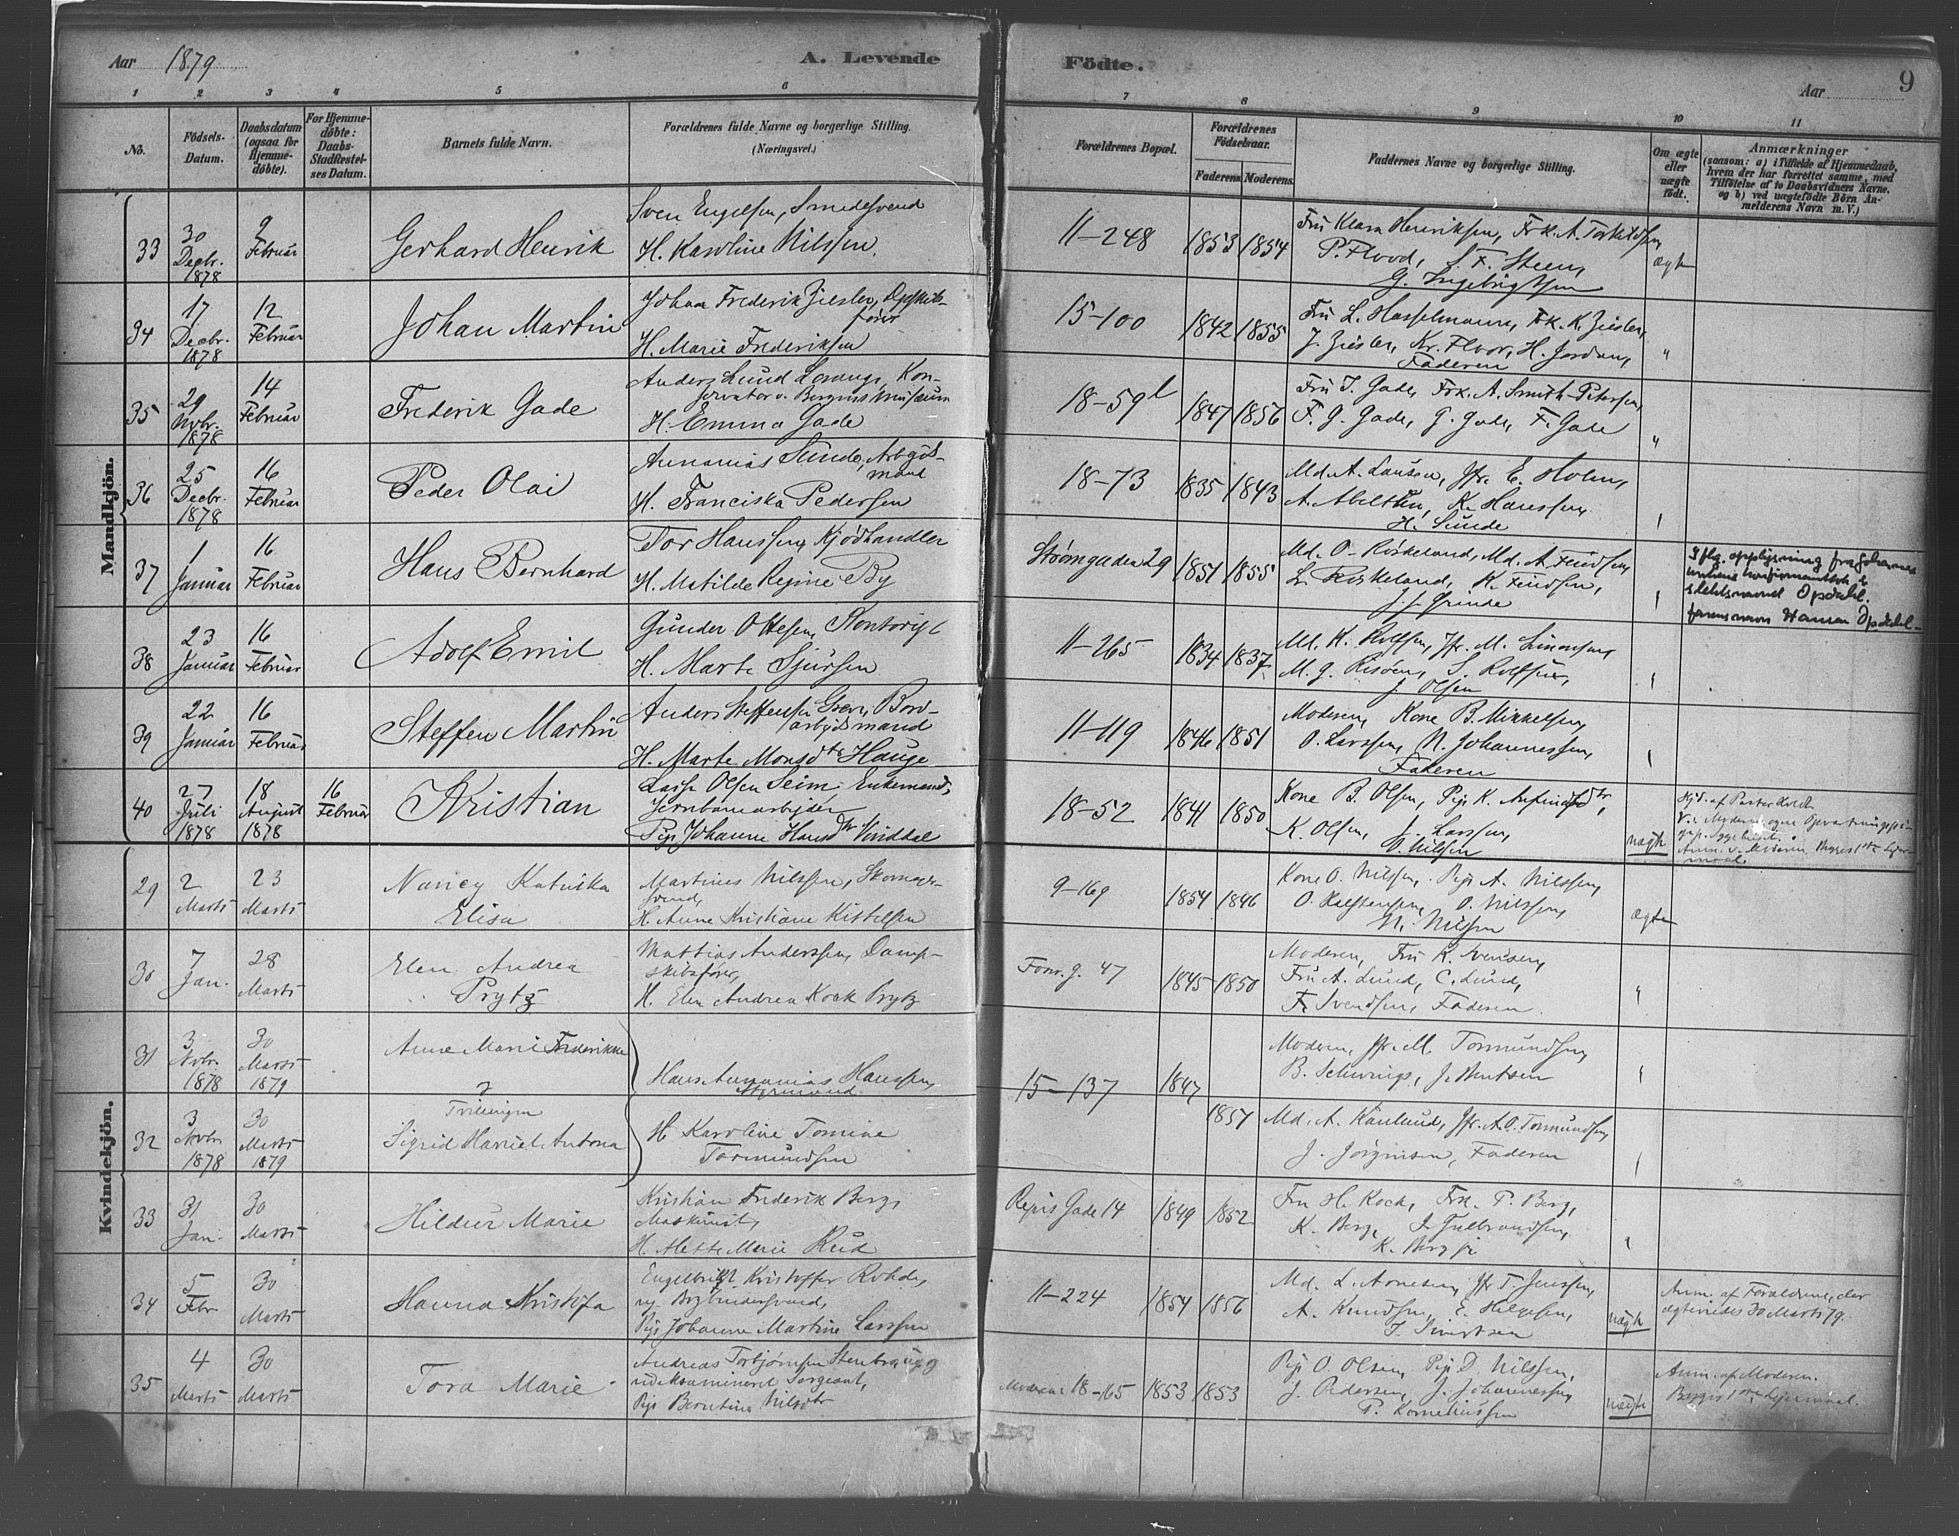 Aar 1879
A. Levende
Födte.
Aar
9
1 2 3 4 5 6 7 8 9 10 11
No.
Födsels-Datum.
Daabsdatum (ogsaa for Hjemmedöbte).
For Hjemmedöbte: Daabs-Stadfæstelses Datum.
Barnets fulde Navn.
Forældrenes fulde Navne og borgerlige Stilling. (Næringsvei.)
Forældrenes Bopæl.
Forældrenes Födselsaar.
Faderens. Moderens.
Faddernes Navne og borgerlige Stilling.
Om ægte eller uægte født.
Anmærkninger
(saasom: a) i Tilfælde af Hjemmedaab, hvem der har forrettet samme, med Tilføielse af to Daabsvidners Navne. og b) ved uægtefødte Börn Anmelderens Navn m. V.)
Mandkjön.
33
30 Decbr. 1878
9 Februar
Gerhard Henrik
Sven Engelsen, Smedesvend
H. Karoline Nilssen.
11-248
1853 1854
Fru Klara Henriksen, Frk. A. Torkildsen,
P. Flood, S. F. Steen,
G. Ingebrigtsen
ægte
34
17 Decbr. 1878
12 Februar
Johan Martin
Johan Frederik Ziesler,
H. Marie Frederiksen
15-100
1842 1855
Fru L. Hasselmann, Frk. K. Ziesler,
J. Ziesler, Kr. Floor, H. Jordan,
Faderen
"
35
29 Novbr. 1878
14 Februar
Frederik Gade
Anders Lund Lorange, Kon-
servator v. Bergens Museum
H. Emma Gade
18-59
1847 1856
Fru I. Gade, Frk. A. Smith-Petersen,
F. G. Gade, G. Gade, F. Gade
"
36
25 Decbr. 1878
16 Februar
Peder Olai
Annanias Sunde, Arbeids-
mand
H. Franciska Pedersen
18-73
1835 1843
Md. A. Lausen, Jfr. E. Holm,
A. Abelsten, K. Hanssen,
H. Sunde
37
1 Januar
16 Februar
Hans Bernhard
Tor Hanssen, Kjødhandler
H. Matilde Regine By
Strømgaden 29
1851 1855
Md. O. Røskeland, Md. A. Knudsen,
L. Røskeland, K. Knudsen,
J. J. Grinde
Iflg. opplysning fra Johannes
slektsnavnet Opdahl.
farens navn Hansen Opdahl
38
23 Januar
16 Februar
Adolf Emil
Gunder Ottesen, Kontorist
H. Marte Sjursen
11-265
1834 1837
Md. K. Rolfsen, Jfr. M. Simonsen,
M. G. Risøen, S. Rolfsen,
J. Olsen
39
22 Januar
16 Februar
Steffen Martin
Anders Steffensen Greve, Bord-
arbeidsmand
H. Marte Monsdtr Hauge
11-119
1846 1851
Moderen, Kone B. Mikkelsen,
O. Larssen, N. Johannessen,
Faderen
40
27 Juli 1878
18 August 1878
16 Februar
Kristian
Lasse Olsen Seim, Enkemand,
Jernbanearbejder
Pige Johanne Hansdtr Vinddal
18-52
1841 1850
Kone B. Olsen, Pige K. Arfinsdtr,
K. Olsen, J. Larssen,
O. Nilsen
uægte
Kvindekjön.
29
2 Marts
23 Marts
Nancy Katinka
Elisa
Martines Nilssen, Skomager-
svend,
H. Anne Kristiane Kittelsen
9-169
1854 1846
Kone O. Nilsen, Pige A. Nilssen,
O. Nilssen,
N. Nilsen
ægte
30
7 Jan.
28 Marts
Elen Andrea
Prytz
Mattias Anderssen, Damp-
skibsfører,
H. Elen Andrea Kock Prytz
47
1845 1850
Moderen, Fru K. Svensen,
Fru A. Lund, C. Lund,
F. Svendsen, Faderen.
"
31
3 Novbr. 1878
30 Marts 1879
Anne Marie Frederikke
Tvillinger
Hans Annanias Hanssen,
Styrmand.
15-137
1847
Moderen, Jfr. M. Tormundsen,
B. Schwings, J. Knutsen
32
3 Novbr 1878
30 Marts 1879
Sigrid Harriet Antona
H. Karoline Tomine
Tormundsen
1857
Md. A. Kanlund, Jfr. A. O. Tormundsen,
J. Jørginsen, Faderen
33
31 Jan.
30 Marts
Hildur Marie
Kristian Frederik Berg,
Maskinist,
H. Mette Marie Rud
Repis Gade 14
1849 1852
Fru H. Kock, Frk. P. Berg,
K. Berg, J. Gulbrandsen,
K. Berg jr
34
5 Febr
30 Marts
Hanna Kristofa
Engelbrikt Kristoffer Rohde,
Pige Johanne Martine Larssen
11-224
1854 1856
Md. L. Arnesen, Jfr. T. Jenssen,
A. Knudsen, E. Helgesen,
J. Sivertsen
uægte
Anm. af Forældrene, der
ægtevies 30 Marts 79.
35
4 Marts
30 Marts
Tora Marie
Andreas Torbjørnsen Stenbrygg
udeksamineret Sergeant,
Pige Berntine Nilsdtr
Moderens 18-165
1853 1853
Pige O. Olsen, Pige D. Nilsen,
J. Pedersen, J. Johannessen,
P. Korneliussen
uægte
Anm. af Moderen.
Begges 1ste Leiermaal.